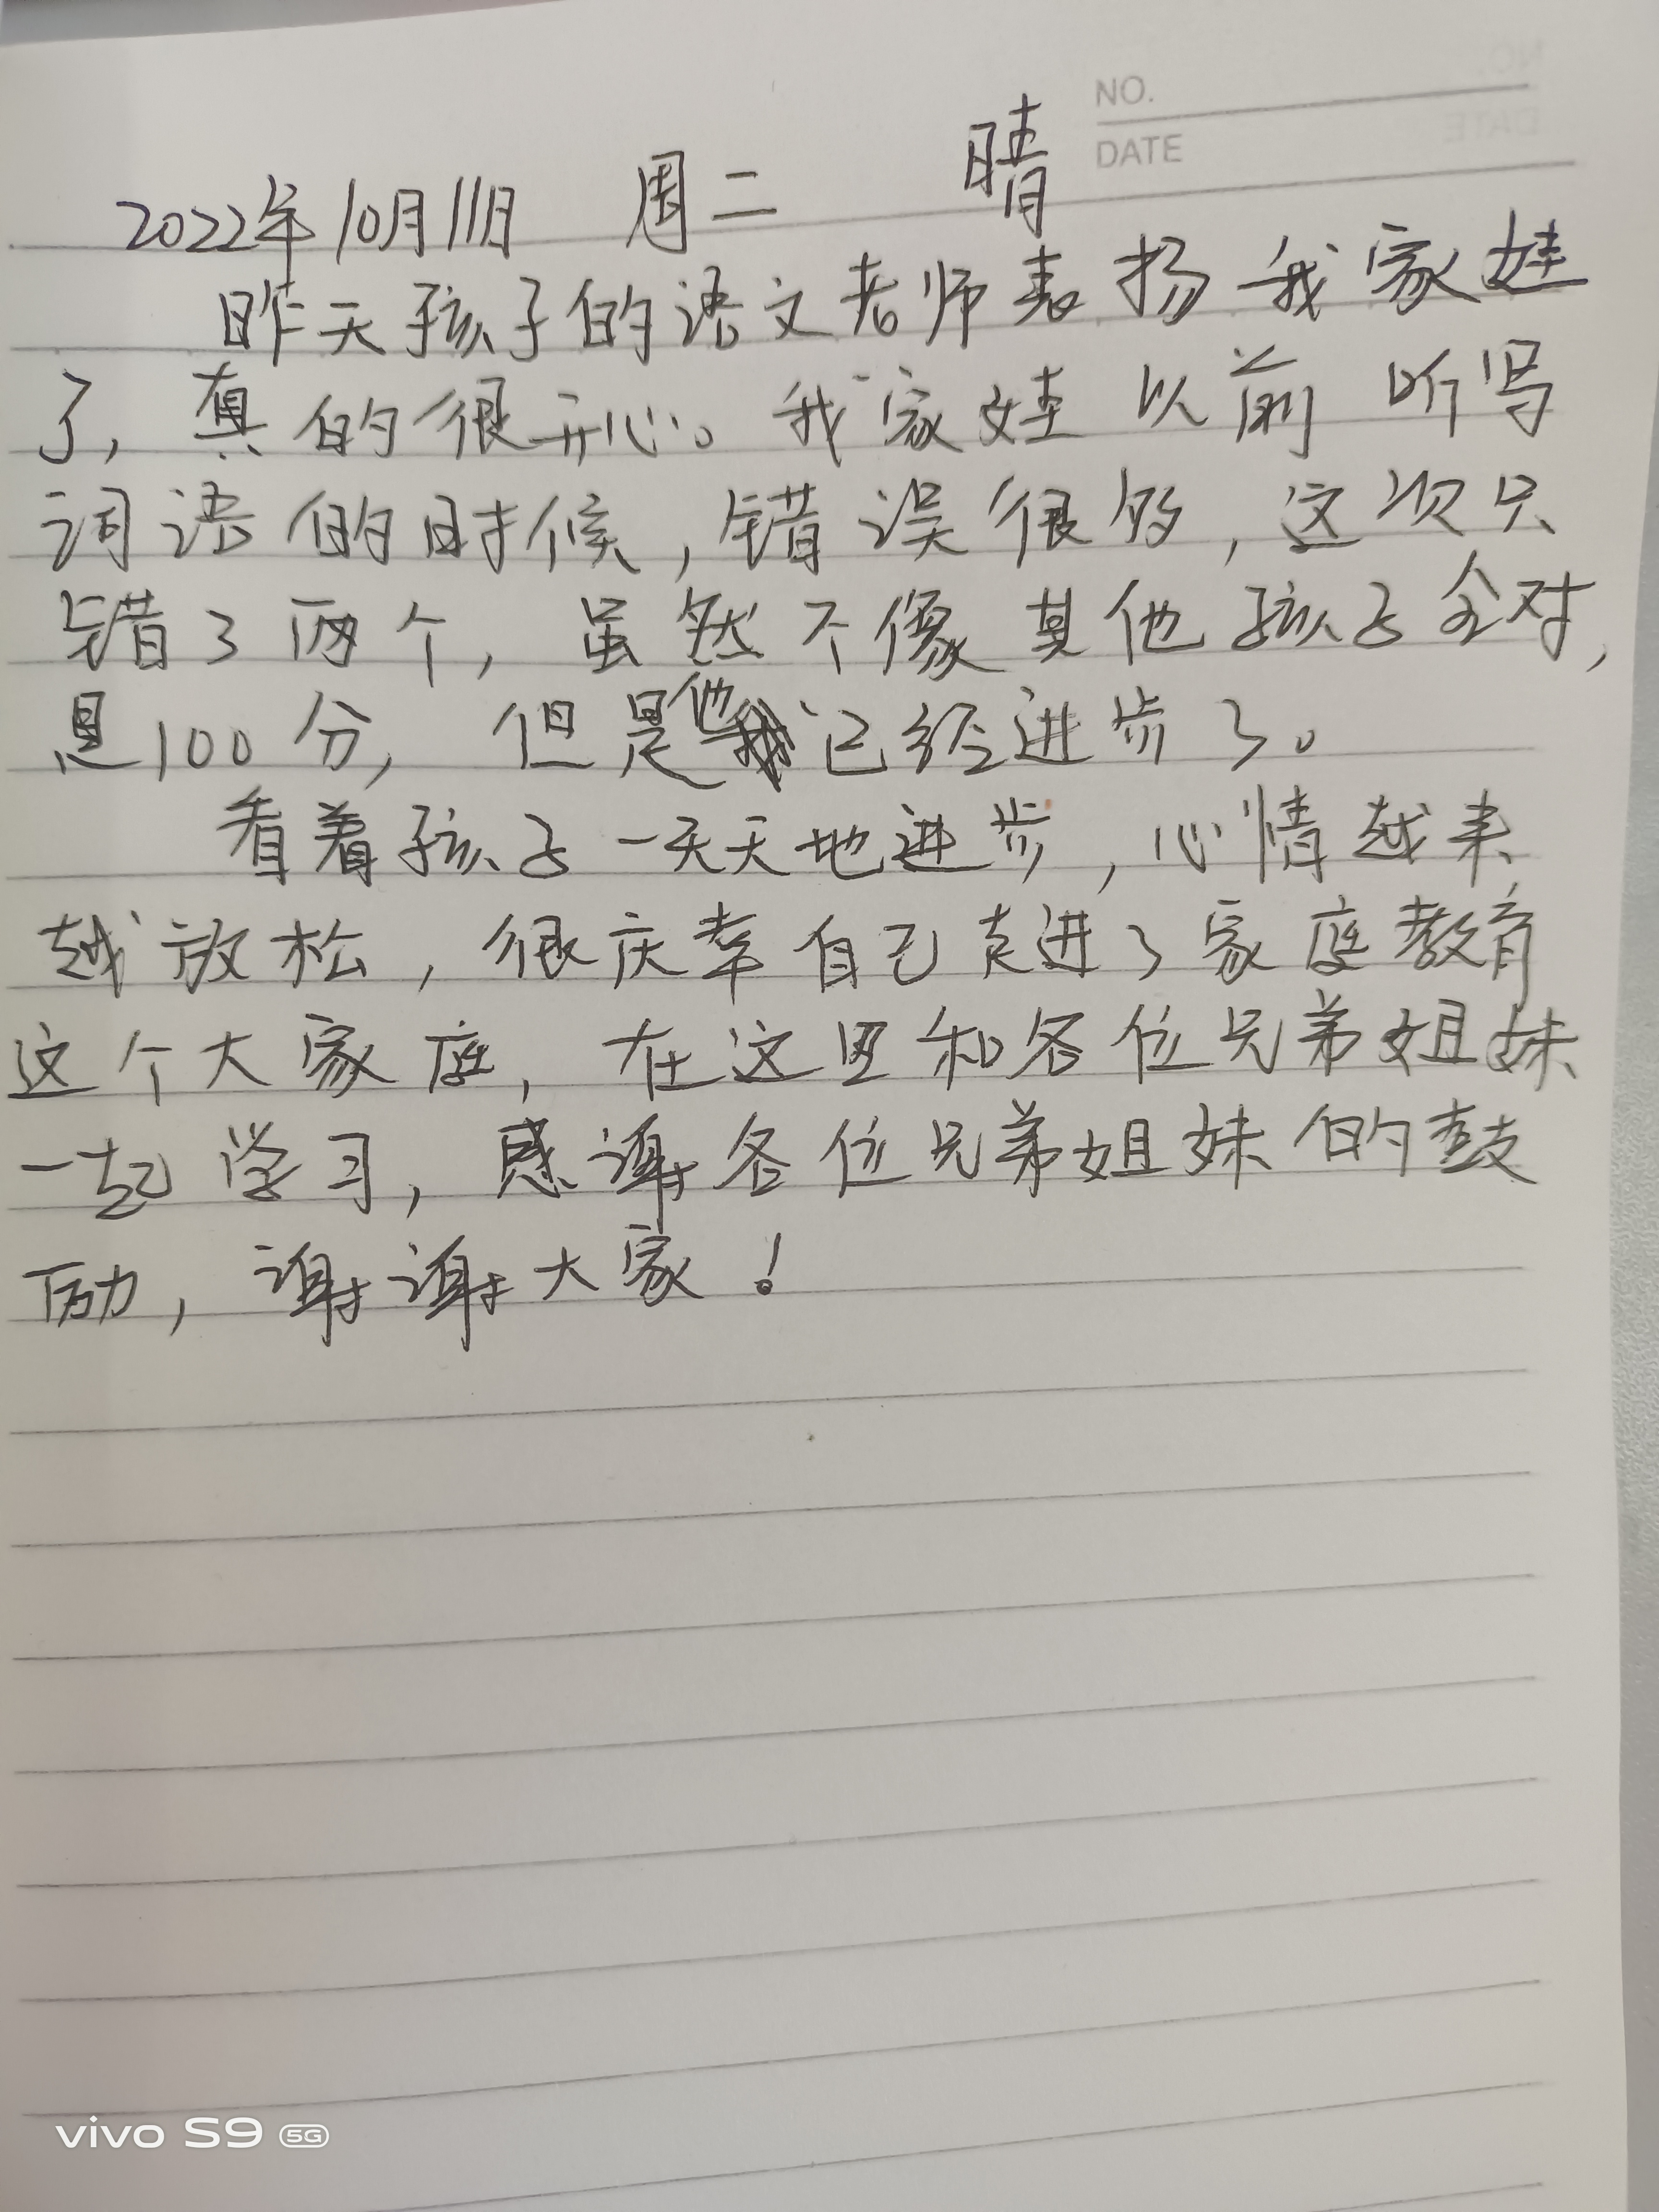 NO.
DATE
2022年10月11日 周二 晴
昨天孩子的语文老师表扬我家娃
了，真的很开心。我家娃以前听写
词语的时候，错误很多，这次只
错了两个，虽然不像其他孩子全对，
是100分，但是他已经进步了。
看着孩子一天天地进步，心情越来
越放松，很庆幸自己走进了家庭教育
这个大家庭，在这里和各位兄弟姐妹
一起学习，感谢各位兄弟姐妹的鼓
励，谢谢大家！
vivo S9 5G